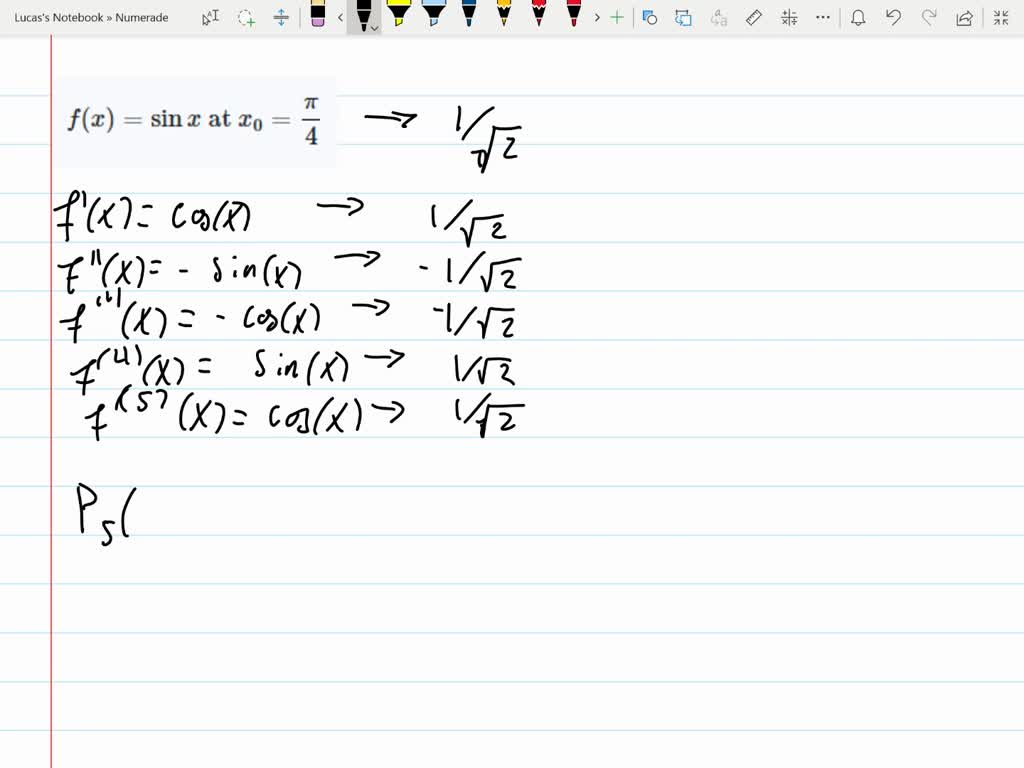 Lucas's Notebook » Numerade
f(x) = sin x at x₀ = π/4 → 1/√2
f'(x) = cos(x) → 1/√2
f''(x) = - sin(x) → -1/√2
f'''(x) = - cos(x) → -1/√2
f⁽⁴⁾(x) = sin(x) → 1/√2
f⁽⁵⁾(x) = cos(x) → 1/√2
P₅(